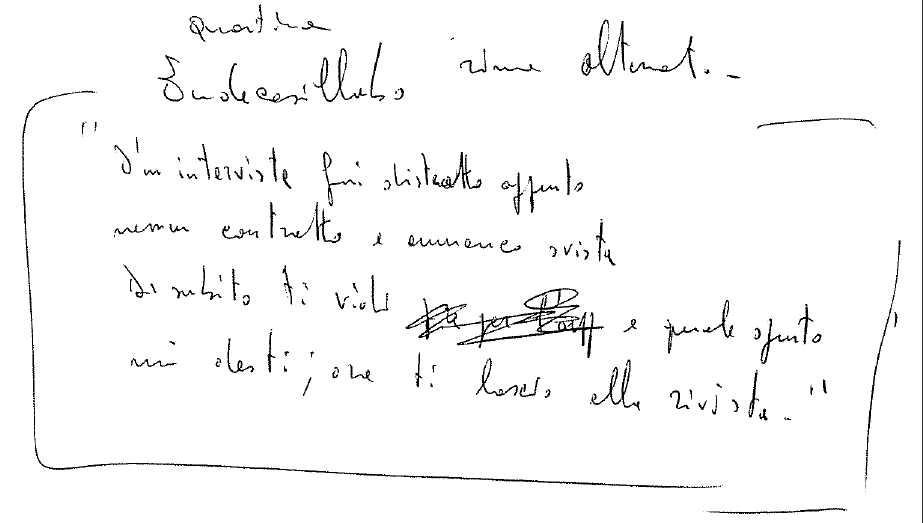 quartine
Endecasillabo rime alternat.-
"
D'un intervista fui distratto appunto
nessun contratto e ennanco svista
Di subito ti vidi e quale spunto
mi desti; ora ti lascio alla rivista."